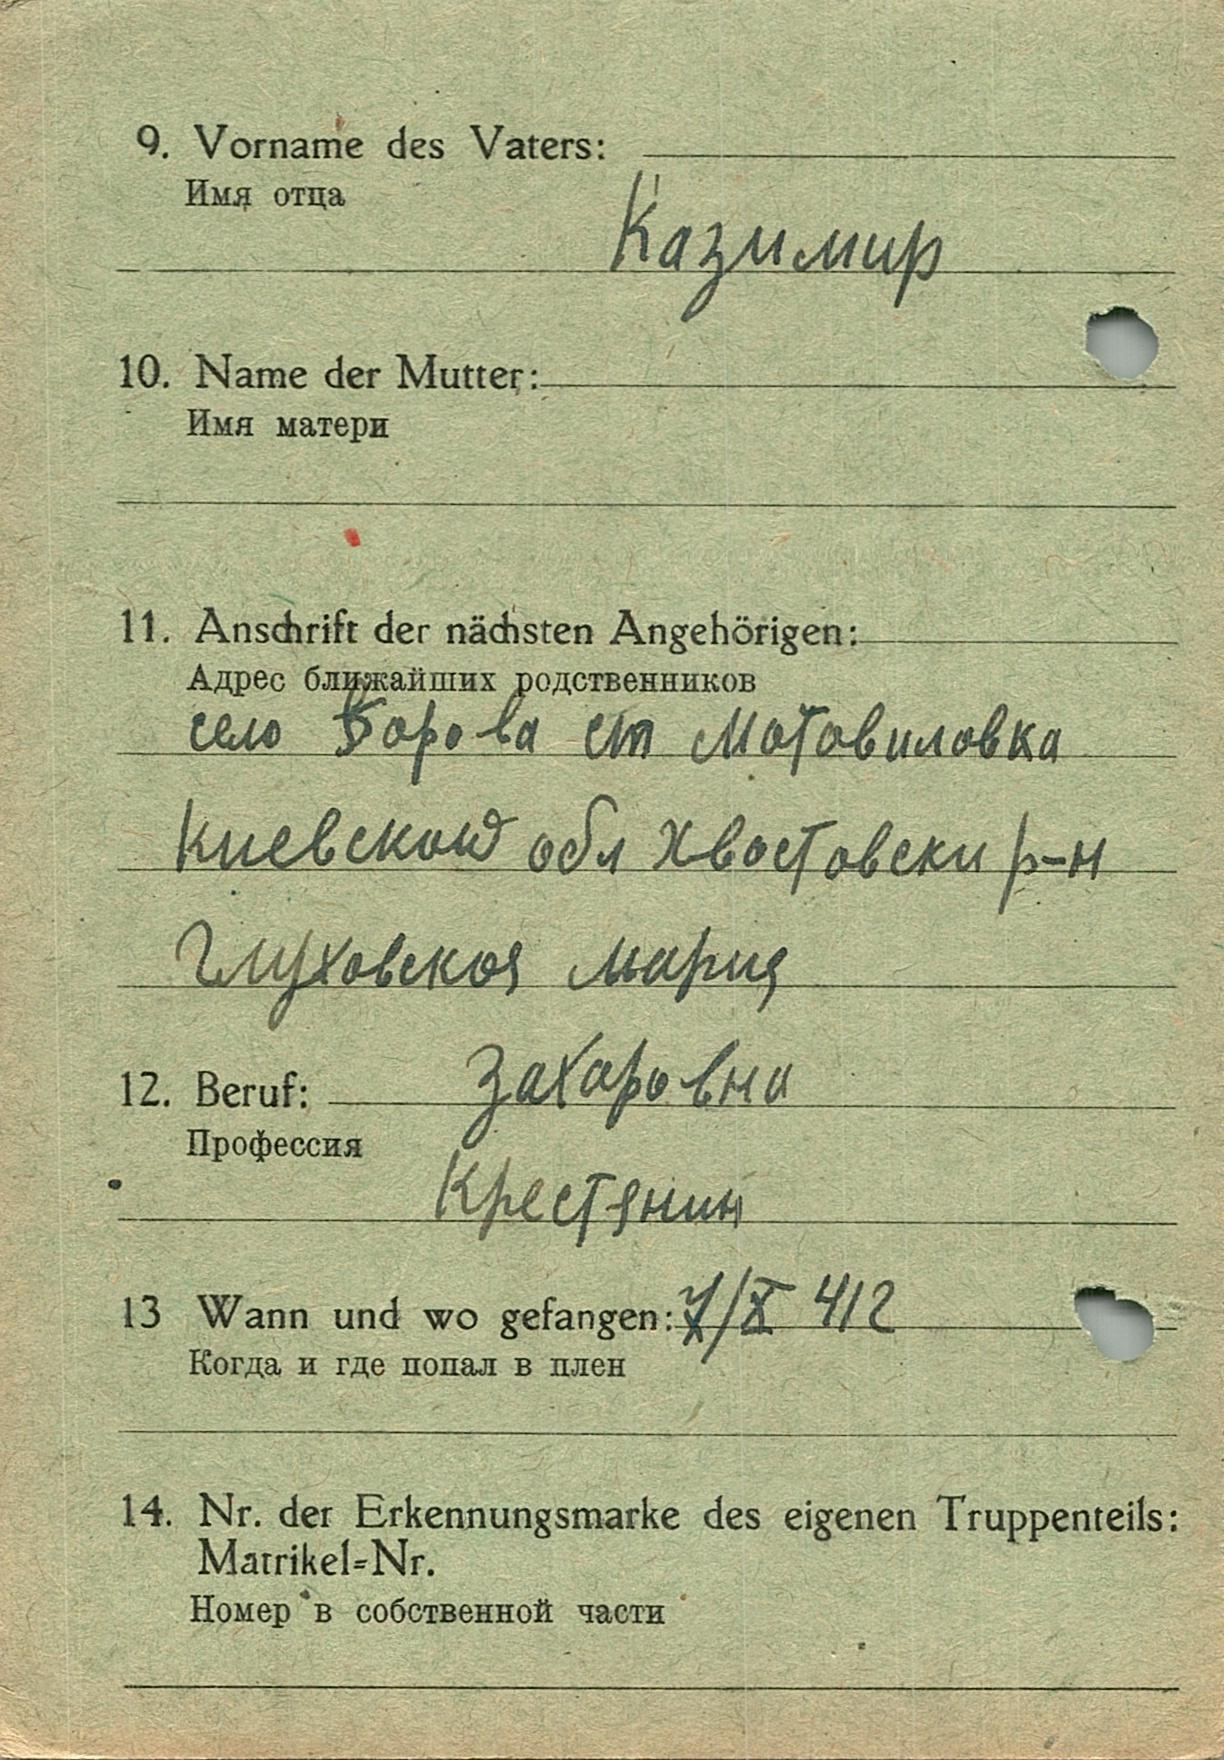 9. Vorname des Vaters:
Имя отца
Казимир
10. Name der Mutter:
Имя матери
11. Anschrift der nächsten Angehörigen:
Адрес ближайших родственников
село Борова ст Мотовиловка
Киевской обл Хвостовски р-н
Глуховская Мария
Захаровна
12. Beruf:
Профессия
Крестянин
13 Wann und wo gefangen: 7/X 412
Когда и где попал в плен
14. Nr. der Erkennungsmarke des eigenen Truppenteils:
Matrikel=Nr.
Номер в собственной части